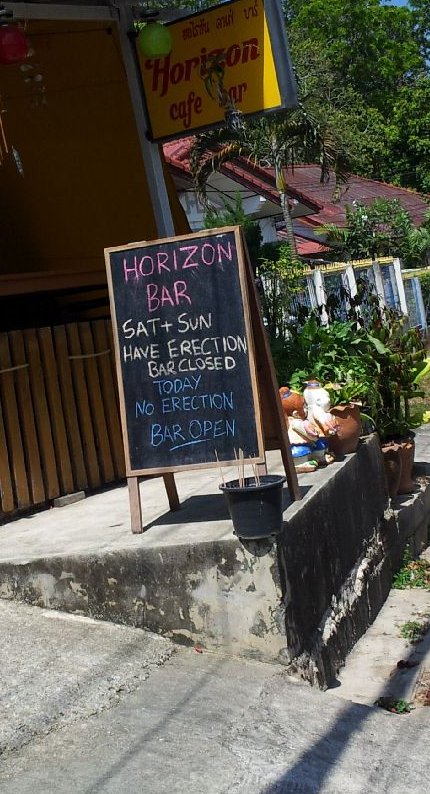 ฮอไรซัน คาเฟ่ บาร์
Horizon
cafe bar
HORIZON
BAR
SAT + SUN
HAVE ERECTION
BAR CLOSED
TODAY
NO ERECTION
BAR OPEN